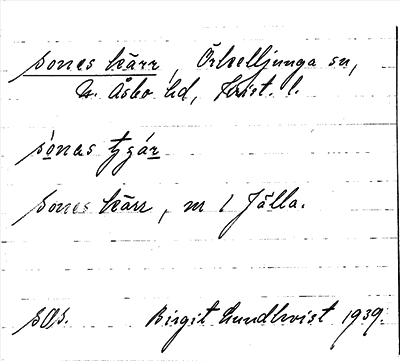 sones kärr, Örkelljunga sn,
N. Åsbo hd, Krist. l.
sónas tɟár
sones kärr, m 1 Jälla.
sOs. Birgit Lundkvist 1939.